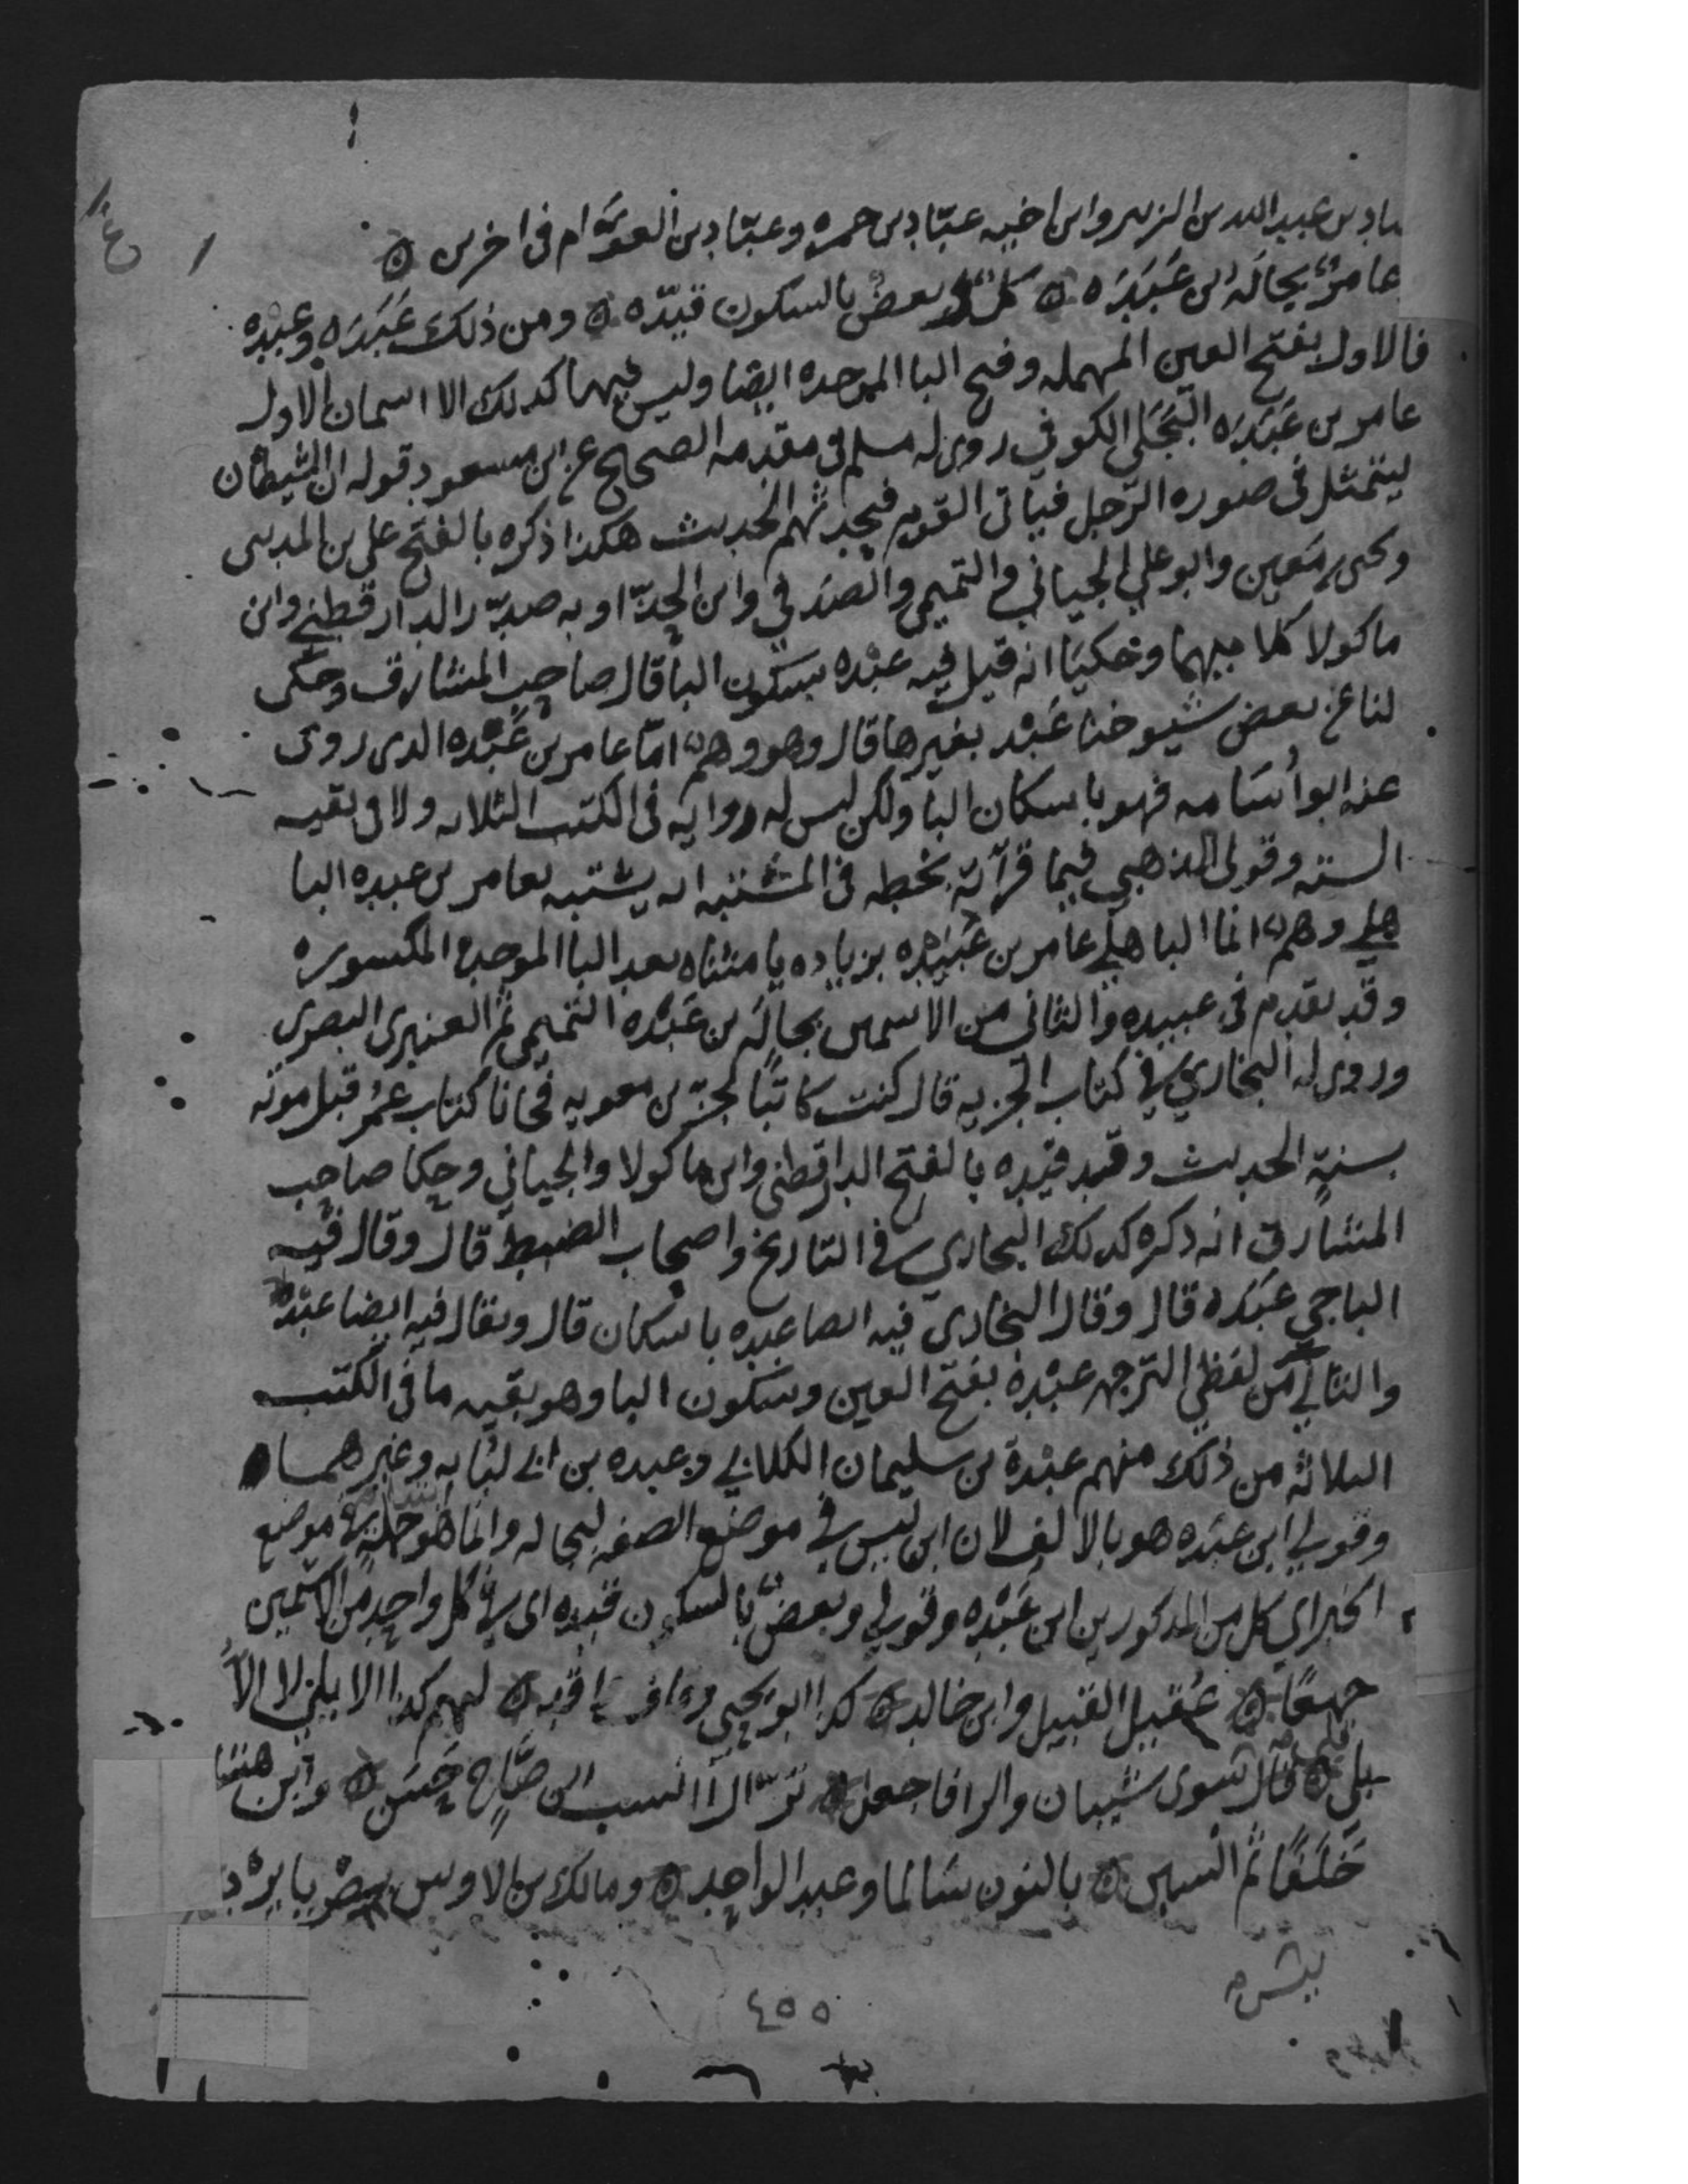 عباد بن عبد الله بن الزبير وابن اخيه عبّاد بن حمزه وعبّاد بن العوّام في اخرين
عامرٌ بجالة بن عَبَدَه كلٌ وبعضٌ بالسكون قيّده ومن ذلك عَبَدَه وعبْده
فالاول بفتح العين المهمله وفتح البا الموحده ايضا وليس فيها كذلك الا اسمان الاول
عامر بن عَبَدَه البَجَلي الكوفي روى له مسلم في مقدمه الصحيح عن ابن مسعود قوله ان الشيطان
ليتمثل في صوره الرّجل فياتي القوم فيحدثهم الحديث هكذا ذكره بالفتح علي بن المديني
ويحيى بن معين وابو علي الجياني والتميمي والصدفي وابن الحذّا وبه صدّر الدارقطني وابن
ماكولا كلاميهما وحكيا انه قيل فيه عبْده بسكون البا قال صاحب المشارق وحكى
لنا عن بعض شيوخنا عَبْد بغير ها قال وهو وهم اما عامر بن عَبْده الذي روى
عنه ابو أسَامه فهو باسكان البا ولكن ليس له روايه في الكتب الثلاثه ولا في بقيه
الستة وقول الذهبي فيما قرأته بخطه في المشتبه انه يشتبه بعامر بن عبده البا
هلي وهم انما الباهلي عامر بن عَبِيْده بزياده يا مثناه بعد البا الموحدة المكسوره
وقد تقدم في عبيده والثاني من الاسمين بجالة بن عَبْده التميمي ثم العنبري البصري
وروى له البخاري في كتاب الجزيه قال كنت كاتبًا لجزء بن معويه فجانا كتاب عُمر قبل موته
بسنةٍ الحديث وقد قيّده بالفتح الدارقطني وابن ماكولا والجياني وحكا صاحب
المشارق انه ذكره كذلك البخاري في التاريخ واصحاب الضبط قال وقال فيه
الباجي عَبَدَه قال وقال البخاري فيه ايضا عبده باسكان قال ويقال فيه ايضا عبْدٌ
والثاني من لفظي الترجمه عبْدة بفتح العين وسكون البا وهو بقيه ما في الكتب
الثلاثه من ذلك منهم عبْدة بن سليمان الكلابي وعبده بن ابي لبابه وغيرهما
وقولي ابن عبده هو بالالف لان ابن ليس في موضع الصفه لبجاله وانما هو في موضع
الخبر اي كل من المذكورين ابن عَبْده وقولي وبعضٌ بالسكون قيده اي في كل واحدٍ من الاسمين
جميعًا عُقيل القبيل وابن خالد كذا ابو يحيى وقاف واقد لهم كذا الايلي لا الاُ
بلي قال سوى شيبان والرا فاجعل بزّارًا انسب ابن صبّاح حَسَن وابن هشا
خَلَفًا ثم انسبن بالنون سَالما وعبد الواحد ومالك بن الاوس نصريا يرد
٤٥٥